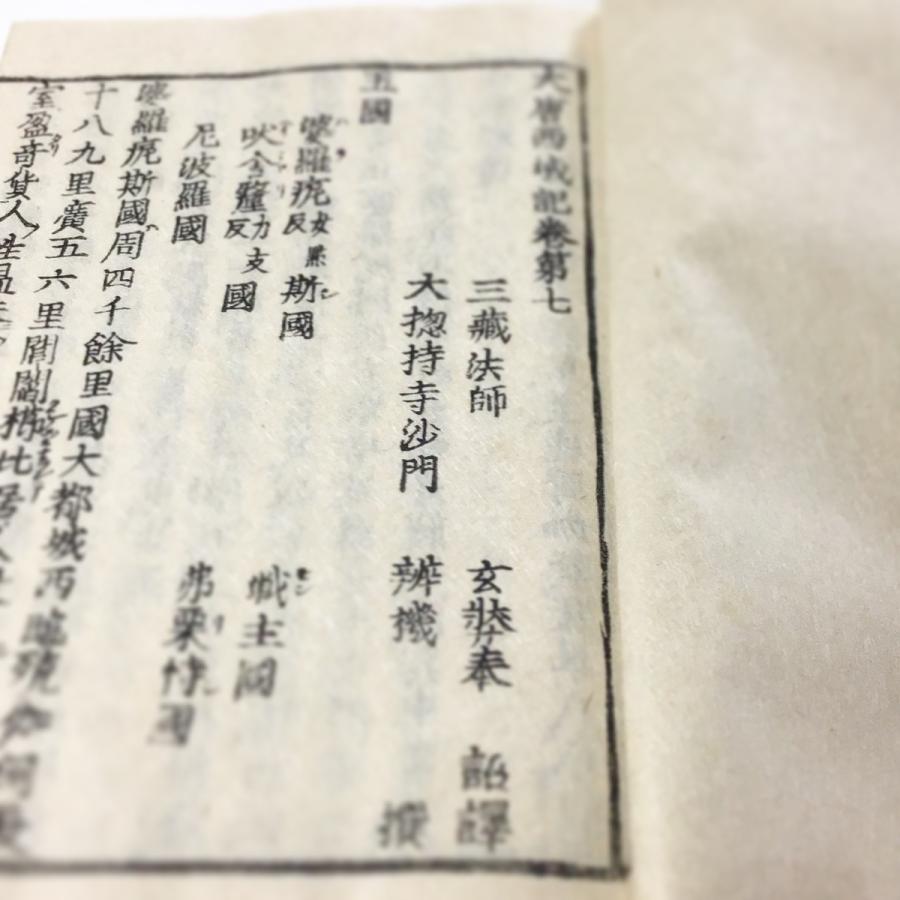 大唐西域記卷第七
三藏法師 玄奘奉 詔譯
大揔持寺沙門 辨機 撰
五國
婆羅痆女黠反斯國 戰主國
吠舍釐力支反國 弗栗恃國
尼波羅國
婆羅痆斯國周四千餘里國大都城西臨殑伽河長
十八九里廣五六里閭閻櫛比居人
室盈奇貨人性